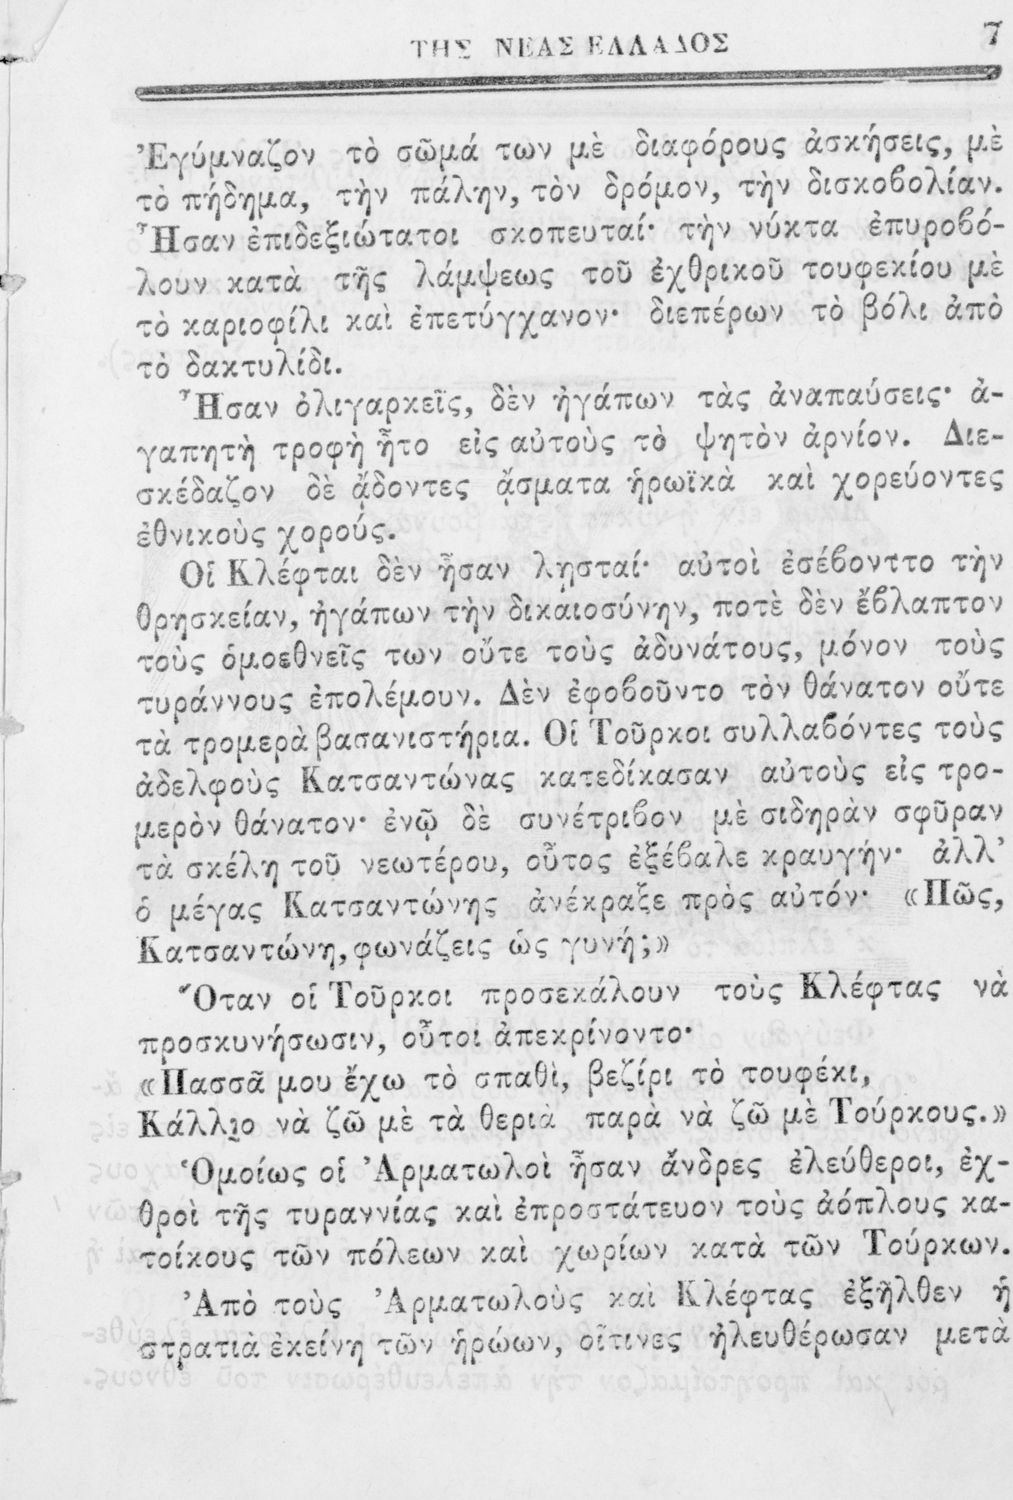 ΤΗΣ ΝΕΑΣ ΕΛΛΑΔΟΣ 7
Ἐγύμναζον τὸ σῶμά των μὲ διαφόρους ἀσκήσεις, μὲ
τὸ πήδημα, τὴν πάλην, τὸν δρόμον, τὴν δισκοβολίαν.
Ἦσαν ἐπιδεξιώτατοι σκοπευταί· τὴν νύκτα ἐπυροβό-
λουν κατὰ τῆς λάμψεως τοῦ ἐχθρικοῦ τουφεκίου μὲ
τὸ καριοφίλι καὶ ἐπετύγχανον· διεπέρων τὸ βόλι ἀπὸ
τὸ δακτυλίδι.
Ἦσαν ὀλιγαρκεῖς, δὲν ἠγάπων τὰς ἀναπαύσεις· ἀ-
γαπητὴ τροφὴ ἦτο εἰς αὐτοὺς τὸ ψητὸν ἀρνίον. Διε-
σκέδαζον δὲ ᾄδοντες ᾄσματα ἡρωϊκὰ καὶ χορεύοντες
ἐθνικοὺς χορούς.
Οἱ Κλέφται δὲν ἦσαν λῃσταί· αὐτοὶ ἐσέβονττο τὴν
θρησκείαν, ἠγάπων τὴν δικαιοσύνην, ποτὲ δὲν ἔβλαπτον
τοὺς ὁμοεθνεῖς των οὔτε τοὺς ἀδυνάτους, μόνον τοὺς
τυράννους ἐπολέμουν. Δὲν ἐφοβοῦντο τὸν θάνατον οὔτε
τὰ τρομερὰ βασανιστήρια. Οἱ Τοῦρκοι συλλαβόντες τοὺς
ἀδελφοὺς Κατσαντώνας κατεδίκασαν αὐτοὺς εἰς τρο-
μερὸν θάνατον· ἐνῷ δὲ συνέτριβον μὲ σιδηρὰν σφῦραν
τὰ σκέλη τοῦ νεωτέρου, οὗτος ἐξέβαλε κραυγήν· ἀλλ’
ὁ μέγας Κατσαντώνης ἀνέκραξε πρὸς αὐτόν· «Πῶς,
Κατσαντώνη, φωνάζεις ὡς γυνή;»
Ὅταν οἱ Τοῦρκοι προσεκάλουν τοὺς Κλέφτας νὰ
προσκυνήσωσιν, οὗτοι ἀπεκρίνοντο·
«Πασσᾶ μου ἔχω τὸ σπαθὶ, βεζίρι τὸ τουφέκι,
Κάλλιο νὰ ζῶ μὲ τὰ θεριὰ παρὰ νὰ ζῶ μὲ Τούρκους.»
Ὁμοίως οἱ Ἀρματωλοὶ ἦσαν ἄνδρες ἐλεύθεροι, ἐχ-
θροὶ τῆς τυραννίας καὶ ἐπροστάτευον τοὺς ἀόπλους κα-
τοίκους τῶν πόλεων καὶ χωρίων κατὰ τῶν Τούρκων.
Ἀπὸ τοὺς Ἀρματωλοὺς καὶ Κλέφτας ἐξῆλθεν ἡ
στρατιὰ ἐκείνη τῶν ἡρώων, οἵτινες ἠλευθέρωσαν μετὰ